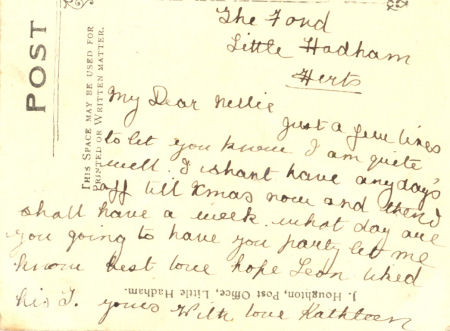 POST
THIS SPACE MAY BE USED FOR
PRINTED OR WRITTEN MATTER.
The Ford
Little Hadham
Herts
My Dear Nellie
Just a few lines
to let you know I am quite
well. I shant have any day's
off till Xmas now and then I
shall have a week. what day are
you going to have you party let me
know best love hope Leon liked
his J. yours With love Kathleen
J. Houghton, Post Office, Little Hadham.